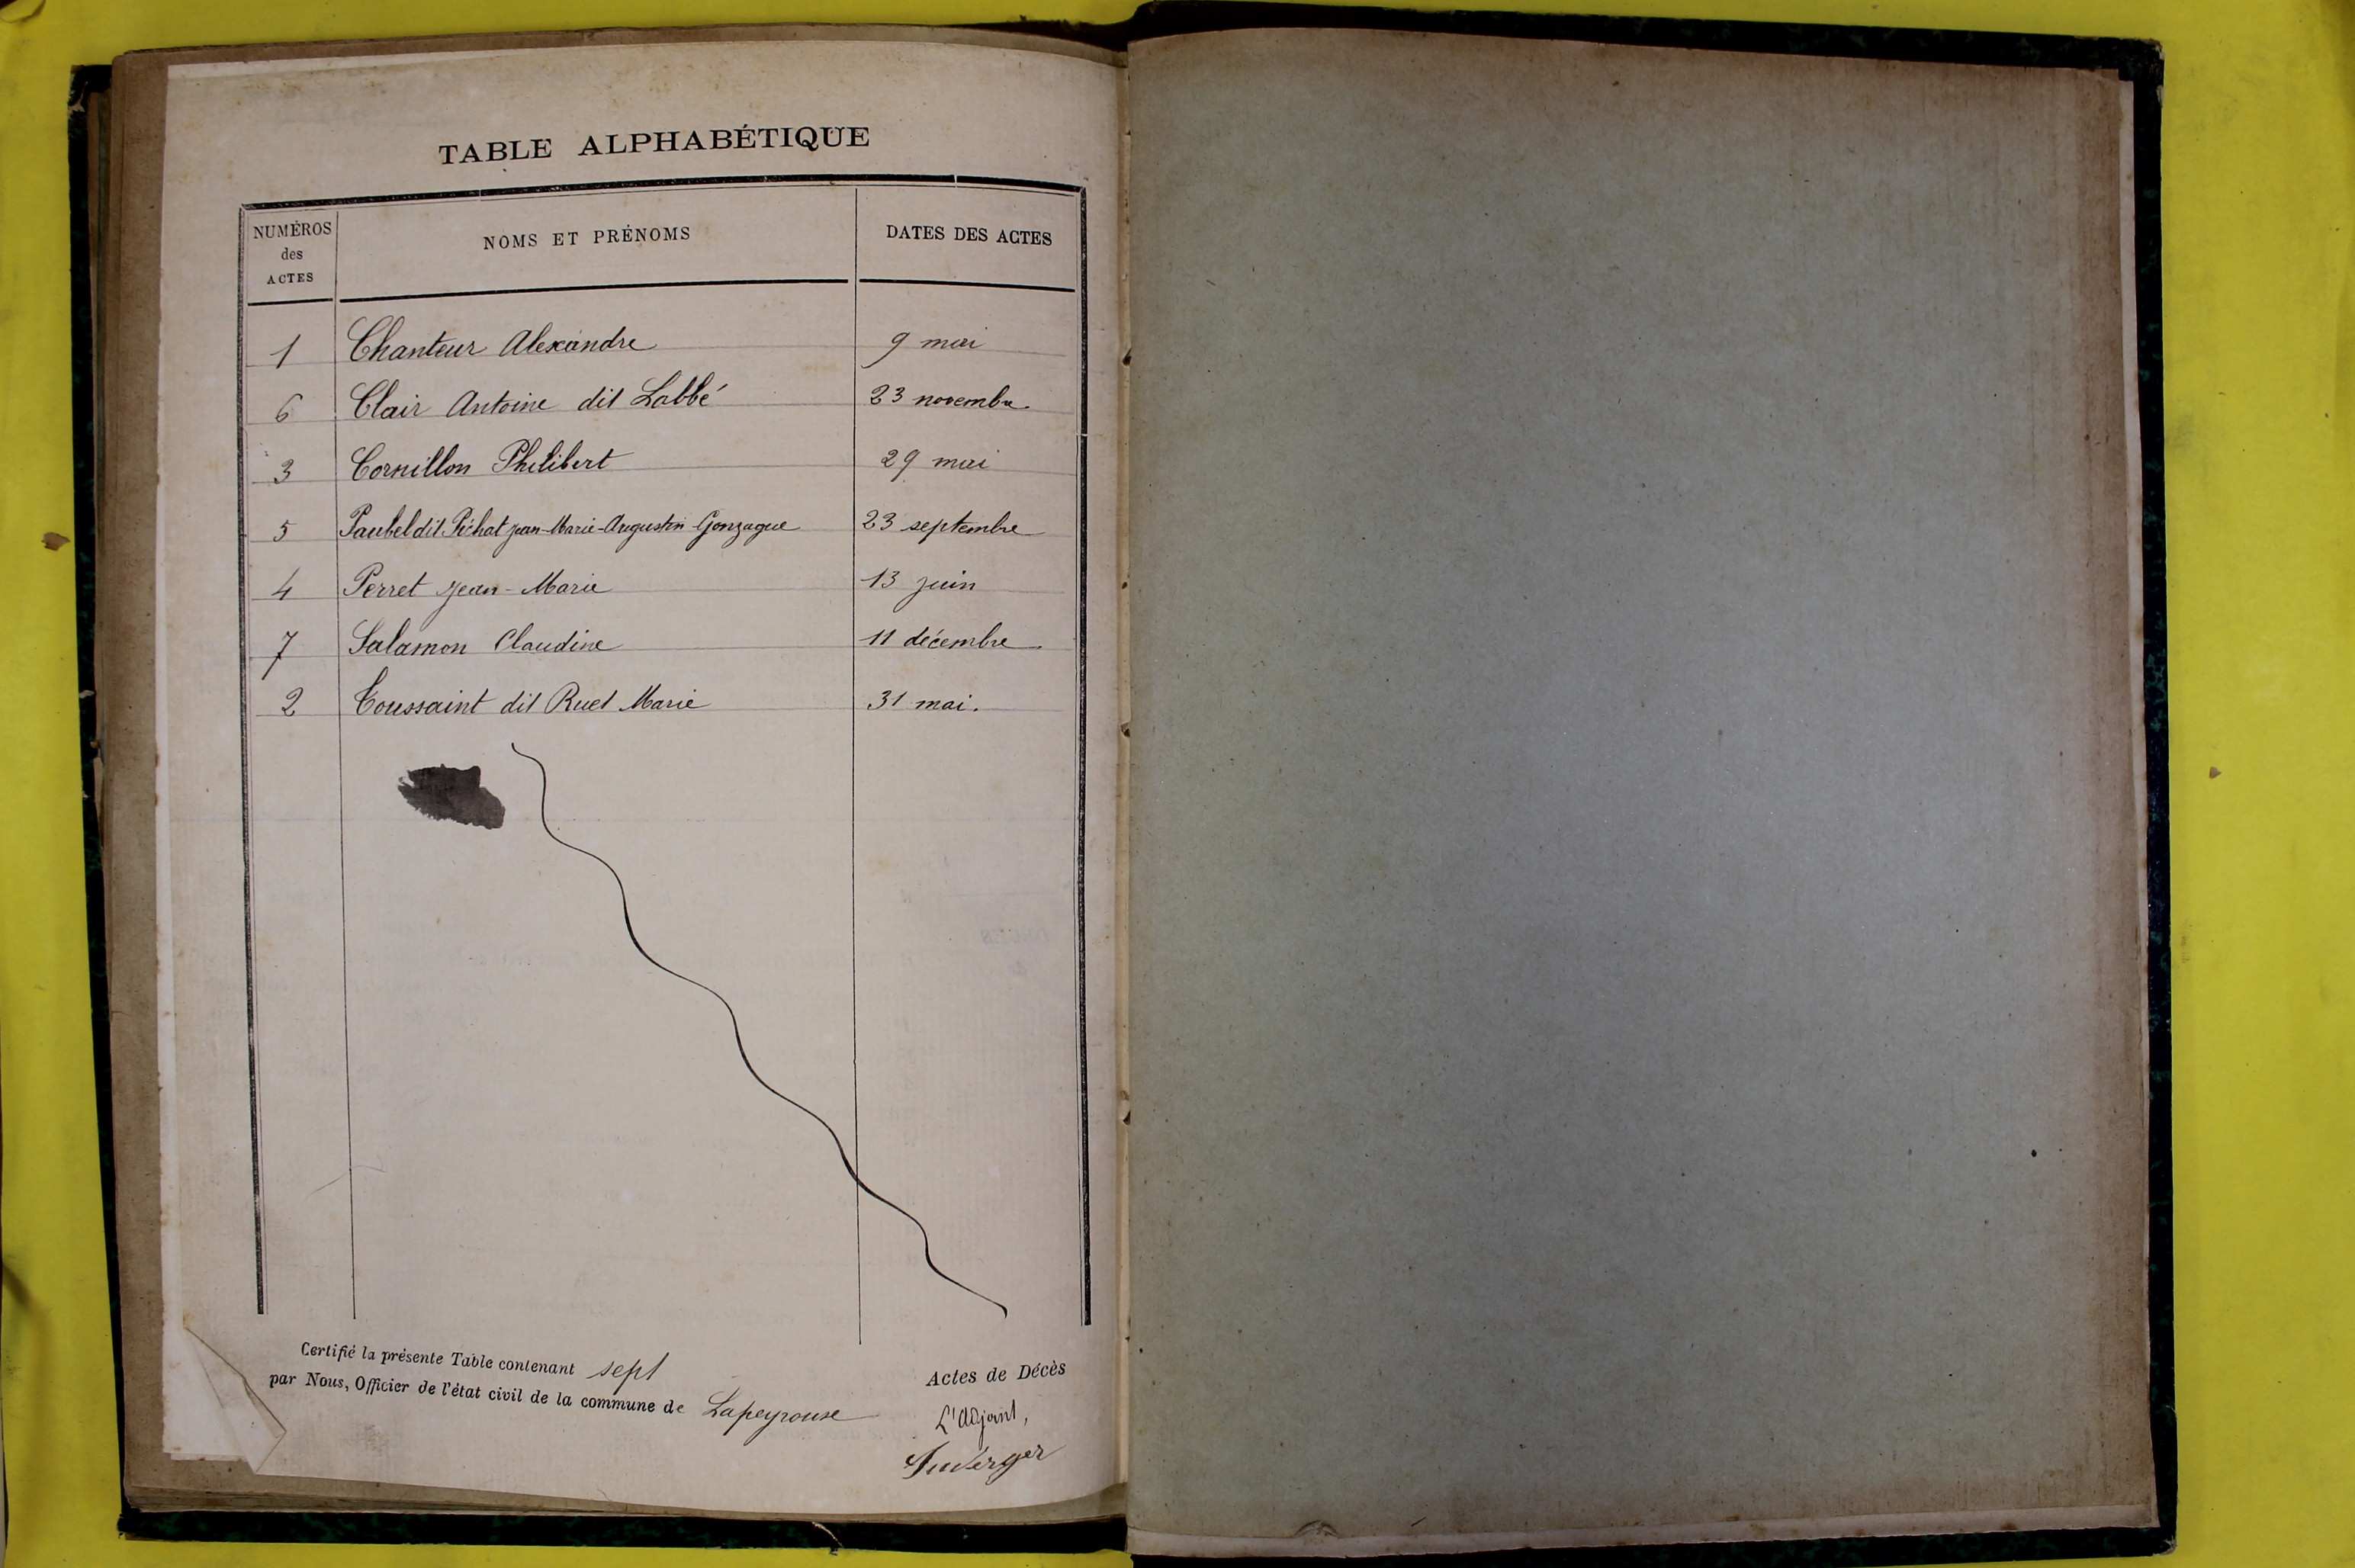 TABLE ALPHABÉTIQUE
NUMÉROS des ACTES NOMS ET PRÉNOMS DATES DES ACTES
1 Chanteur Alexandre 9 mai
6 Clair Antoine dit Labbé 23 novembre
3 Cornillon Philibert 29 mai
5 Paubel dit Péchat Jean-Marie-Augustin-Gonzague 23 septembre
4 Perret Jean-Marie 13 juin
7 Salamon Claudine 11 décembre
2 Toussaint dit Ruet Marie 31 mai.
Certifié la présente Table contenant sept Actes de Décès
par Nous, Officier de l'état civil de la commune de Lapeyrouse
L'Adjoint,